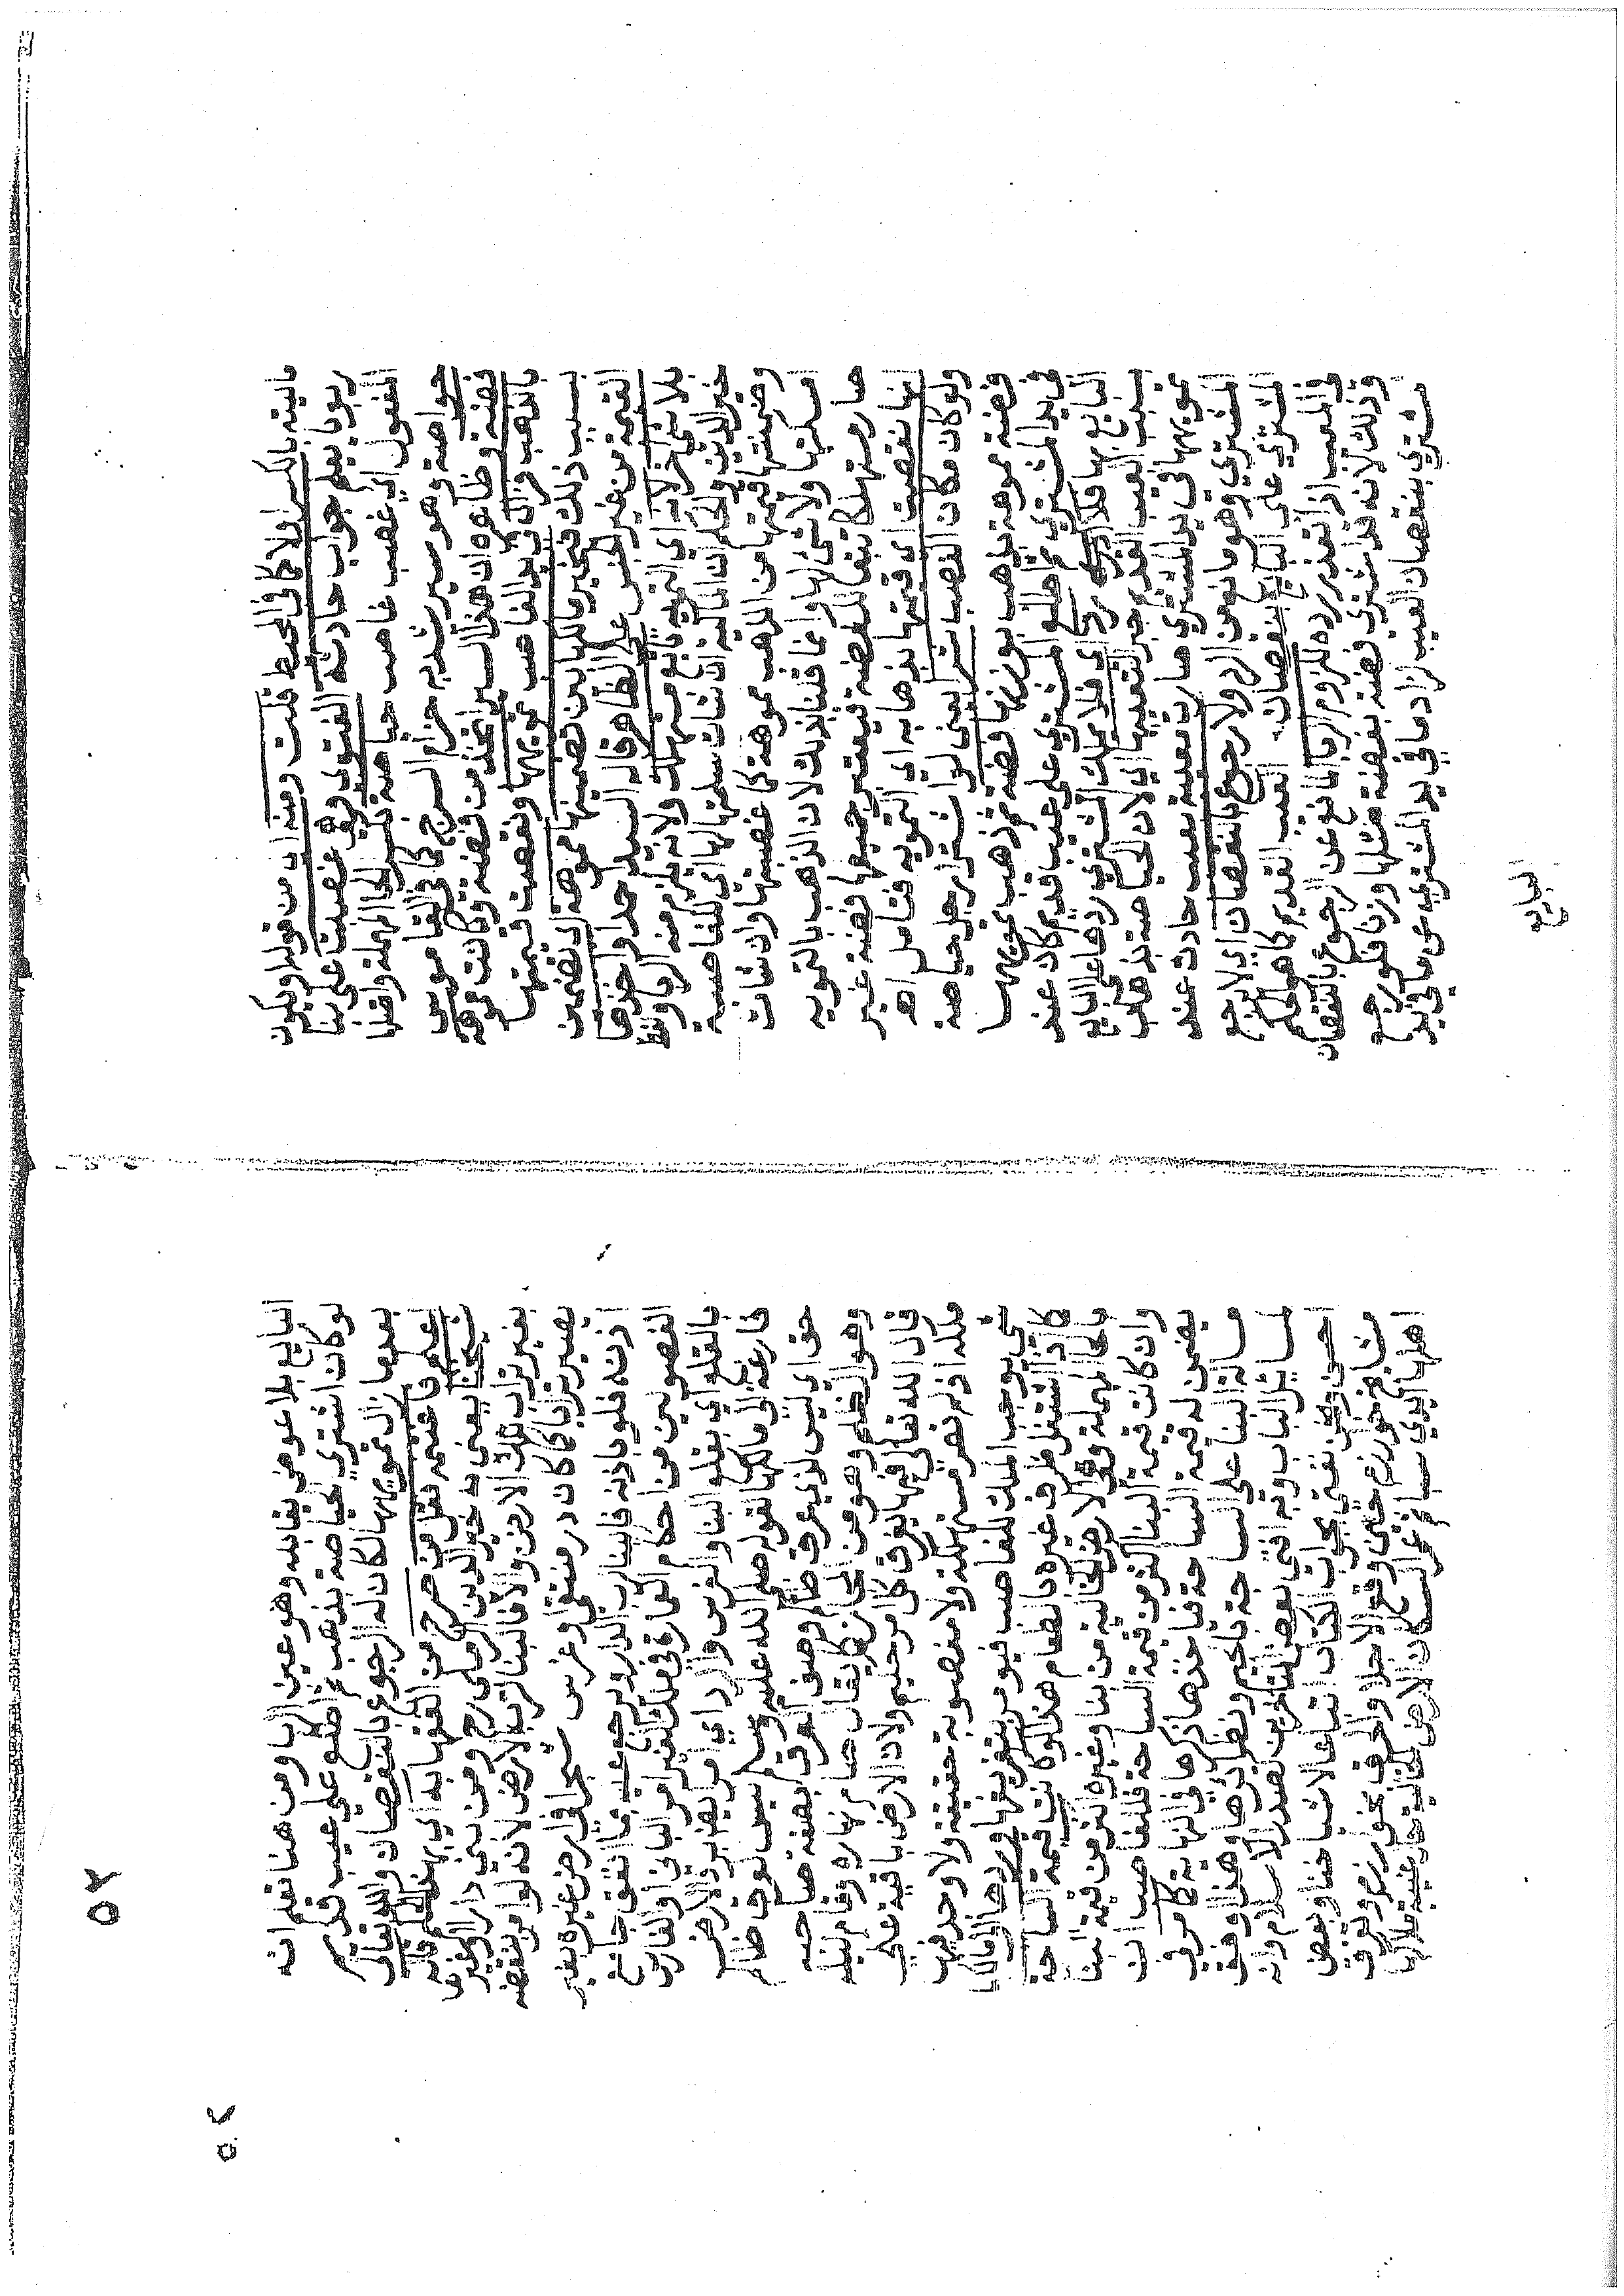 ماليته بالكسر اولا كما في المحيط قلت ومنه اي من قوله او يكون
ربويا يعلم جواب حادثة الفتوى وهي غصبت على بنا
المفعول اي غصب غاصب حياصة بكسر الحا المهملة واصلها
حواصة وهو سير يشد به حزام السرج كما في القاموس
فضة وظاهره ان هذا السير اتخذ من فضة وكانت مموهة
بالذهب فزال في يد الغاصب تمويهها ونقصت قيمتها
بسبب ذلك فتخير مالكها بين تضمينها مموهة اي تضمين
القيمة من غير الجنس على الظاهر قاله السيد احمد او اخذها
بلا شي اخر لانه اي التمويه تابع مستهلك ولانه يلزم منه الربا
خير الدين والحكم ان المالكة ان شات سلمتها لها اي للغاصبة
وضمنتها قيمتها من الذهب مموهة كما غصبتها وان شات
امسكتها ولا شي لها وانما قلنا بذلك لان الذهب بالتمويه
صار مستهلكا تبعا للفضة فيعتبر جميعها فضة غير
انها نقصت اي قيمتها بذهابه اي التمويه فتامل اه
ولو كان مكان الغصب شرا يعني لو اشترا رجل حياصة
فضة مموهة بذهب بوزنها فضة ثم ذهب تمويهها
في يد المشتري ثم اطلع المشتري على عيب قديم كان عند
البايع بها فلا رد اي فلا يملك المشتري ردها على البايع
بسبب العيب القديم جبرا لتعيبها اي لان الحياصة بذهاب
تمويهها في يد المشتري صارت معيبة بعيب حادث عند
المشتري وهو مانع من الرد ولا رجوع بالنقصان اي لا يرجع
المشتري على البايع بنقصان العيب القديم كما هو الحكم
في المعيب اذا تعذر رده للزوم الربا المانع عن الرجوع بالنقصان
وذلك لانه قد اشترى فضة بفضة مثلها وزنا فلو رجع
مشتري بنقصان العيب لزاد ما في يد المشتري عن ما في يد
البايع
٥٢
٥٢
البايع بلا عوض يقابله وهو عين الربا ومن هنا تعلم انه
لو كان اشترى الحياصة بذهب ثم اطلع على عيب قديم
بعد ما زال تمويهها لكان له الرجوع بالنقصان والله تعالى
اعلم فاغتنمه فقل من صرح من الفقها به اي بهذا الحكم قاله
شيخنا يعني به خير الدين الرملي رح ومن بنى دارا
بغير تراب تلك الارض والا فالبنا لرب الارض لانه لو امر بنقضه
يصير ترابا كما كان در منتقى او غرس شجرا في ارض غيره بغير
اذنه فلو باذنه فالبنا لرب الدار ويرجع عليه بما انفق جامع
الفصولين من احكام العمارة في ملك الغير امر الباني او الغارس
بالقلع اي بقلع البنا والغرس والرد اي امر ايضا برد الارض
فارغة الى مالكها لقوله صلى الله عليه وسلم ليس لعرق ظالم
حق اي ليس لذي عرق ظالم وصف العرق بصفة صاحبه
وهو الظلم وهو من المجاز كما يقال صام نهاره وقام ليله
قال الله تعالى فيها يفرق كل امر حكيم ولان الارض باقية على
ملكه اذ لم تصر مستهلكة ولا مغصوبة حقيقة ولا وجد فيها
شي يوجب الملك للغاصب فيومر بتفريغها وردها الى مالكها
كما اذا اشتغل ظرف غيره بالطعام هذا لو كانت قيمة الساحة
بالحا المهملة وهي الارض الخالية من بنا وغيره اكثر من قيمة البنا
وان كانت قيمة البنا اكثر من قيمة الساحة فللغاصب ان
يضمن له قيمة الساحة فياخذها ذكره في النهاية كما مر في
مسالة البنا على الساجة بالجيم ونظائرها وهذا اوفق
لمسايل الباب وبه افتى بعض المتاخرين كصدر الاسلام وانه
حسن ونحن نفتي بجواب الكتاب اتباعا لاشياخنا وبعض
مشايخ خوارزم